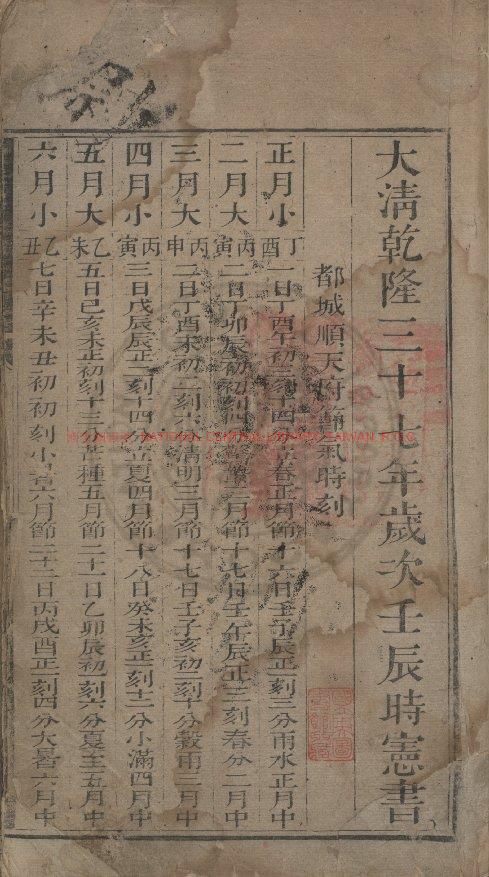 大清乾隆三十七年歲次壬辰時憲書
都城順天府節氣時刻
正月小 丁酉 一日丁酉午初三刻十四分立春正月節十六日壬子辰正一刻三分雨水正月中
二月大 丙寅 二日丁卯辰初初刻 二月節十七日壬午辰正三刻春分二月中
三月大 丙申 二日丁酉未初二刻六分清明三月節十七日壬子亥初二刻十分穀雨三月中
四月小 丙寅 三日戊辰辰正二刻十四分立夏四月節十八日癸未亥正一刻十二分小滿四月中
五月大 乙未 五日己亥未正初刻十三分芒種五月節二十一日乙卯辰初一刻六分夏至五月中
六月小 乙丑 七日辛未丑初初刻小暑六月節二十二日丙戌酉正一刻四分大暑六月中
NATIONAL CENTRAL LIBRARY, TAIWAN, R.O.C.